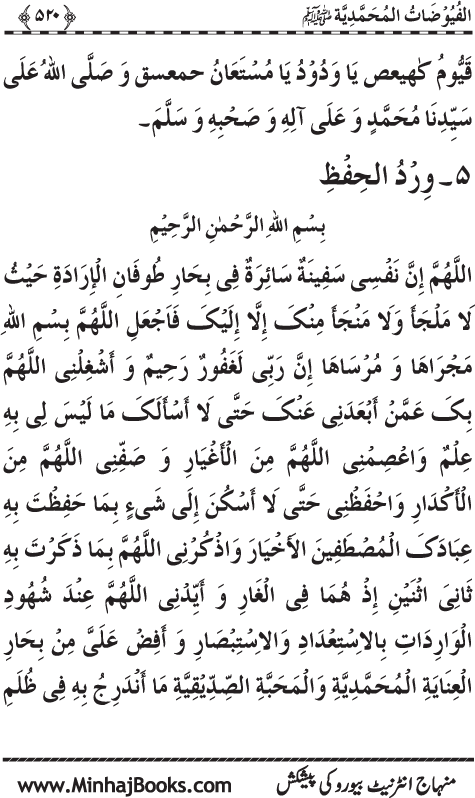 الفُيُوْضَاتُ المُحَمَّدِيَّة ﷺ ﴿۵۲۰﴾
قَيُّومُ كٓهيعص يَا وَدُوْدُ يَا مُسْتَعَانُ حمعسق وَ صَلَّى اللهُ عَلَى
سَيِّدِنَا مُحَمَّدٍ وَ عَلَى آلِهِ وَ صَحْبِهِ وَ سَلَّمَ۔
۵۔ وِرْدُ الحِفْظِ
بِسْمِ اللهِ الرَّحْمٰنِ الرَّحِيْمِ
اللَّهُمَّ إِنَّ نَفْسِى سَفِينَةٌ سَائِرَةٌ فِى بِحَارِ طُوفَانِ الْإِرَادَةِ حَيْثُ
لَا مَلْجَأَ وَلَا مَنْجَأَ مِنْكَ إِلَّا إِلَيْكَ فَاجْعَلِ اللَّهُمَّ بِسْمِ اللهِ
مَجْرَاهَا وَ مُرْسَاهَا إِنَّ رَبِّى لَغَفُورٌ رَحِيمٌ وَ أَشْغِلْنِى اللَّهُمَّ
بِكَ عَمَّنْ أَبْعَدَنِى عَنْكَ حَتَّى لَا أَسْأَلَكَ مَا لَيْسَ لِى بِهِ
عِلْمٌ وَاعْصِمْنِى اللَّهُمَّ مِنَ الْأَغْيَارِ وَ صَفِّنِى اللَّهُمَّ مِنَ
الْأَكْدَارِ وَاحْفَظْنِى حَتَّى لَا أَسْكُنَ إِلَى شَىءٍ بِمَا حَفِظْتَ بِهِ
عِبَادَكَ الْمُصْطَفِينَ الْأَخْيَارَ وَاذْكُرْنِى اللَّهُمَّ بِمَا ذَكَرْتَ بِهِ
ثَانِىَ اثْنَيْنِ إِذْ هُمَا فِى الْغَارِ وَ أَيِّدْنِى اللَّهُمَّ عِنْدَ شُهُودِ
الْوَارِدَاتِ بِالاسْتِعْدَادِ وَالاسْتِبْصَارِ وَ أَفِضْ عَلَىَّ مِنْ بِحَارِ
الْعِنَايَةِ الْمُحَمَّدِيَّةِ وَالْمَحَبَّةِ الصِّدِّيْقِيَّةِ مَا أَنْدَرِجُ بِهِ فِى ظُلَمِ
منہاج انٹرنیٹ بیورو کی پیشکش www.MinhajBooks.com